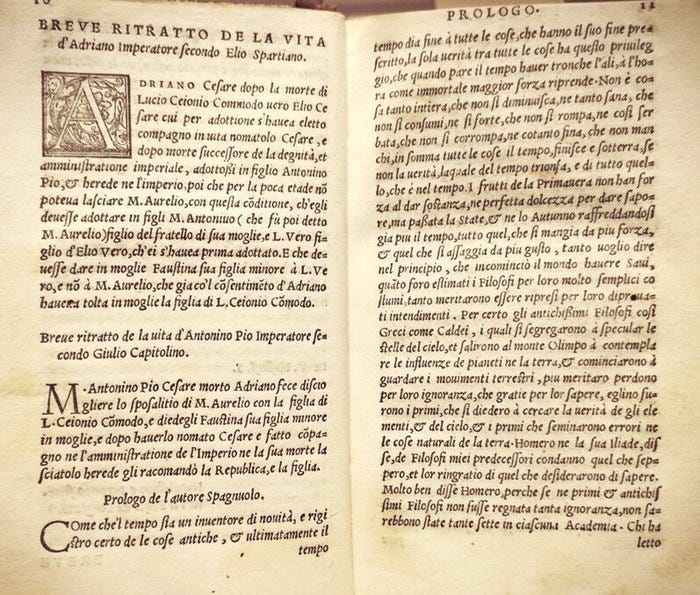 10
BREVE RITRATTO DE LA VITA
d'Adriano Imperatore secondo Elio Spartiano.
ADRIANO Cesare dopo la morte di
Lucio Ceionio Commodo uero Elio Ce
sare cui per adottione s'hauea eletto
compagno in uita nomatolo Cesare, e
dopo morte successore de la degnità, et
amministratione imperiale, adottossi in figlio Antonino
Pio, & herede ne l'imperio, poi che per la poca etade nō
poteua lasciare M. Aurelio, con questa cōditione, ch'egli
deuesse adottare in figli M. Antoniuo ( che fù poi detto
M. Aurelio) figlio del fratello di sua moglie, e L. Vero fi-
glio d'Elio Vero, ch'ei s'hauea prima adottato. E che de-
uesse dare in moglie Faustina sua figlia minore à L. Ve-
ro, e nō à M. Aurelio, che gia co'l cōsentimēto d'Adriano
hauea tolta in moglie la figlia di L. Ceionio Cōmodo.
Breue ritratto de la uita d'Antonino Pio Imperatore se-
condo Giulio Capitolino.
M. Antonino Pio Cesare morto Adriano fece discio
gliere lo sposalitio di M. Aurelio con la figlia di
L. Ceionio Cōmodo, e diedegli Faustina sua figlia minore
in moglie, e dopo hauerlo nomato Cesare e fatto cōpa-
gno ne l'amministratione de l'Imperio ne la sua morte la
sciatolo herede gli racomandò la Republica, e la figlia.
Prologo de l'autore Spagnuolo.
Come che'l tempo sia un inuentor de nouità, e rigi
stro certo de le cose antiche, & ultimatamente il
tempo
PROLOGO. 11
tempo dia fine à tutte le cose, che hanno il suo fine pre-
scritto, la sola uerità tra tutte le cose ha questo priuileg
gio, che quando pare il tempo hauer tronche l'ali, à l'ho-
ra come immortale maggior forza riprende. Non è co-
sa tanto intiera, che non si diminuisca, ne tanto sana, che
non si consumi, ne si forte, che non si rompa, ne così ser
bata, che non si corrompa, ne cotanto fina, che non man
chi, in somma tutte le cose il tempo, finisce e sotterra, se
non la uerità, laquale del tempo trionfa, e di tutto quel-
lo, che è nel tempo. I frutti de la Primauera non han for
za al dar sostanza, ne perfetta dolcezza per dare sapo-
re, ma passata la State, & ne lo Autunno raffreddandosi
gia piu il tempo, tutto quel, che si mangia da piu forza,
& quel che si assaggia da piu gusto, tanto uoglio dire
nel principio, che incominciò il mondo hauere Saui,
quāto foro estimati i Filosofi per loro molto semplici co
stumi, tanto meritarono essere ripresi per loro diproua-
ti intendimenti. Per certo gli antichissimi Filosofi così
Greci come Caldei, i quali si segregarono à specular le
stelle del cielo, et salirono al monte Olimpo à contempla
re le influenze de pianeti ne la terra, & cominciarono à
guardare i mouimenti terrestri, piu meritaro perdono
per loro ignoranza, che gratie per lor sapere, eglino fu-
rono i primi, che si diedero à cercare la uerità de gli ele
menti, & del cielo, & i primi che seminarono errori ne
le cose naturali de la terra. Homero ne la sua Iliade, dis
se, de Filosofi miei predecessori condanno quel che sepa-
pero, et lor ringratio di quel che desiderarono di sapere.
Molto ben disse Homero, perche se ne primi & antichis
simi Filosofi non fusse regnata tanta ignoranza, non sa-
rebbono state tante sette in ciascuna Academia. Chi ha
letto